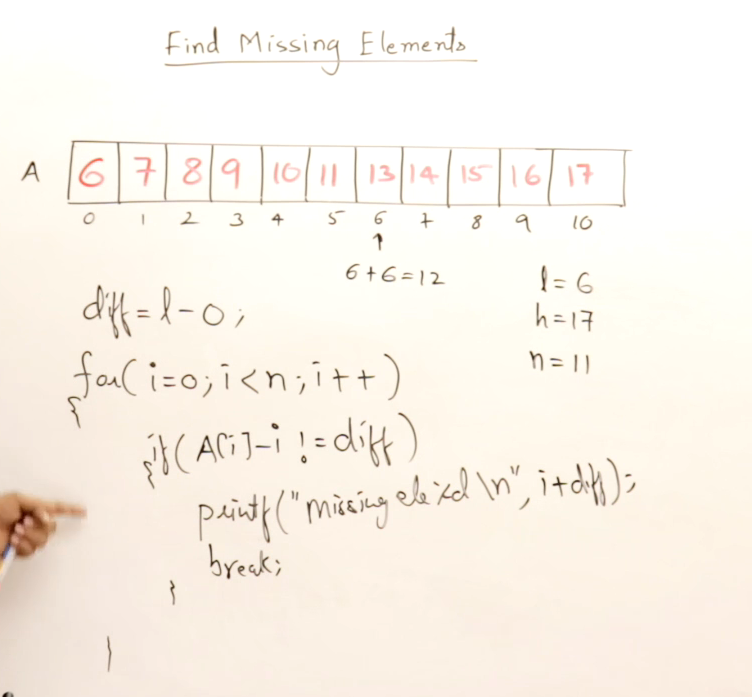 Find Missing Elements
A 6 7 8 9 10 11 13 14 15 16 17
0 1 2 3 4 5 6 7 8 9 10
↑
6+6=12
l=6
h=17
n=11
diff=l-0;
for(i=0;i<n;i++)
{
if(A[i]-i!=diff)
{
printf("missing ele %d \n", i+diff);
break;
}
}